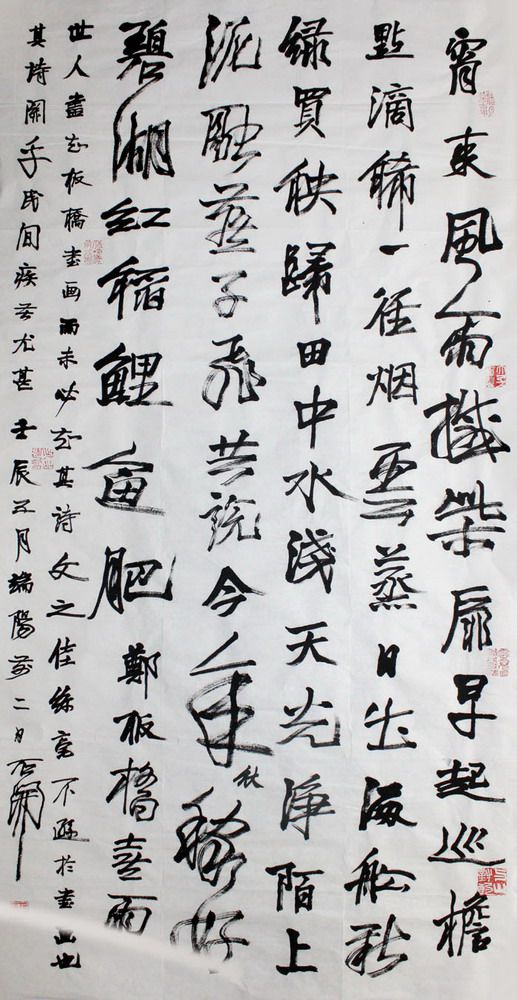 宵来風雨撼柴扉早起巡檐
點滴稀一径烟雲蒸日出滿船新
绿買秧歸田中水淺天光净陌上
泥融燕子飛共説今年秋稼好
碧湖红稻鯉魚肥 鄭板橋喜雨
世人盡知板橋書画而未必知其詩文之佳絲毫不遜於書画也
其詩関乎民间疾苦尤甚 壬辰五月端陽前二日